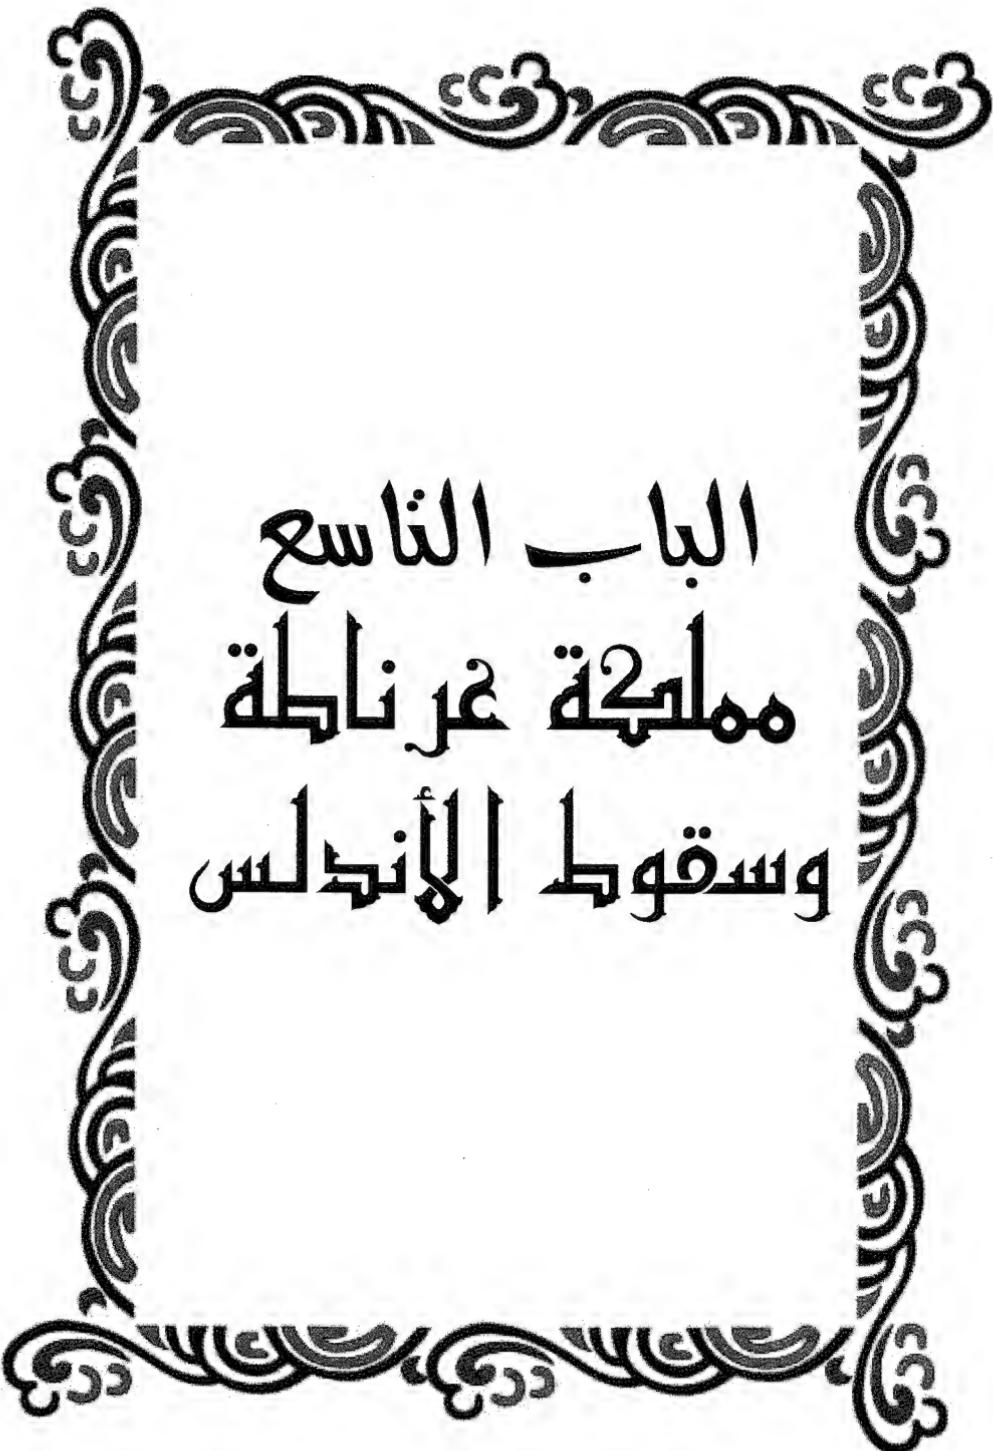 الباب التاسع
مملكة غرناطة
وسقوط الأندلس